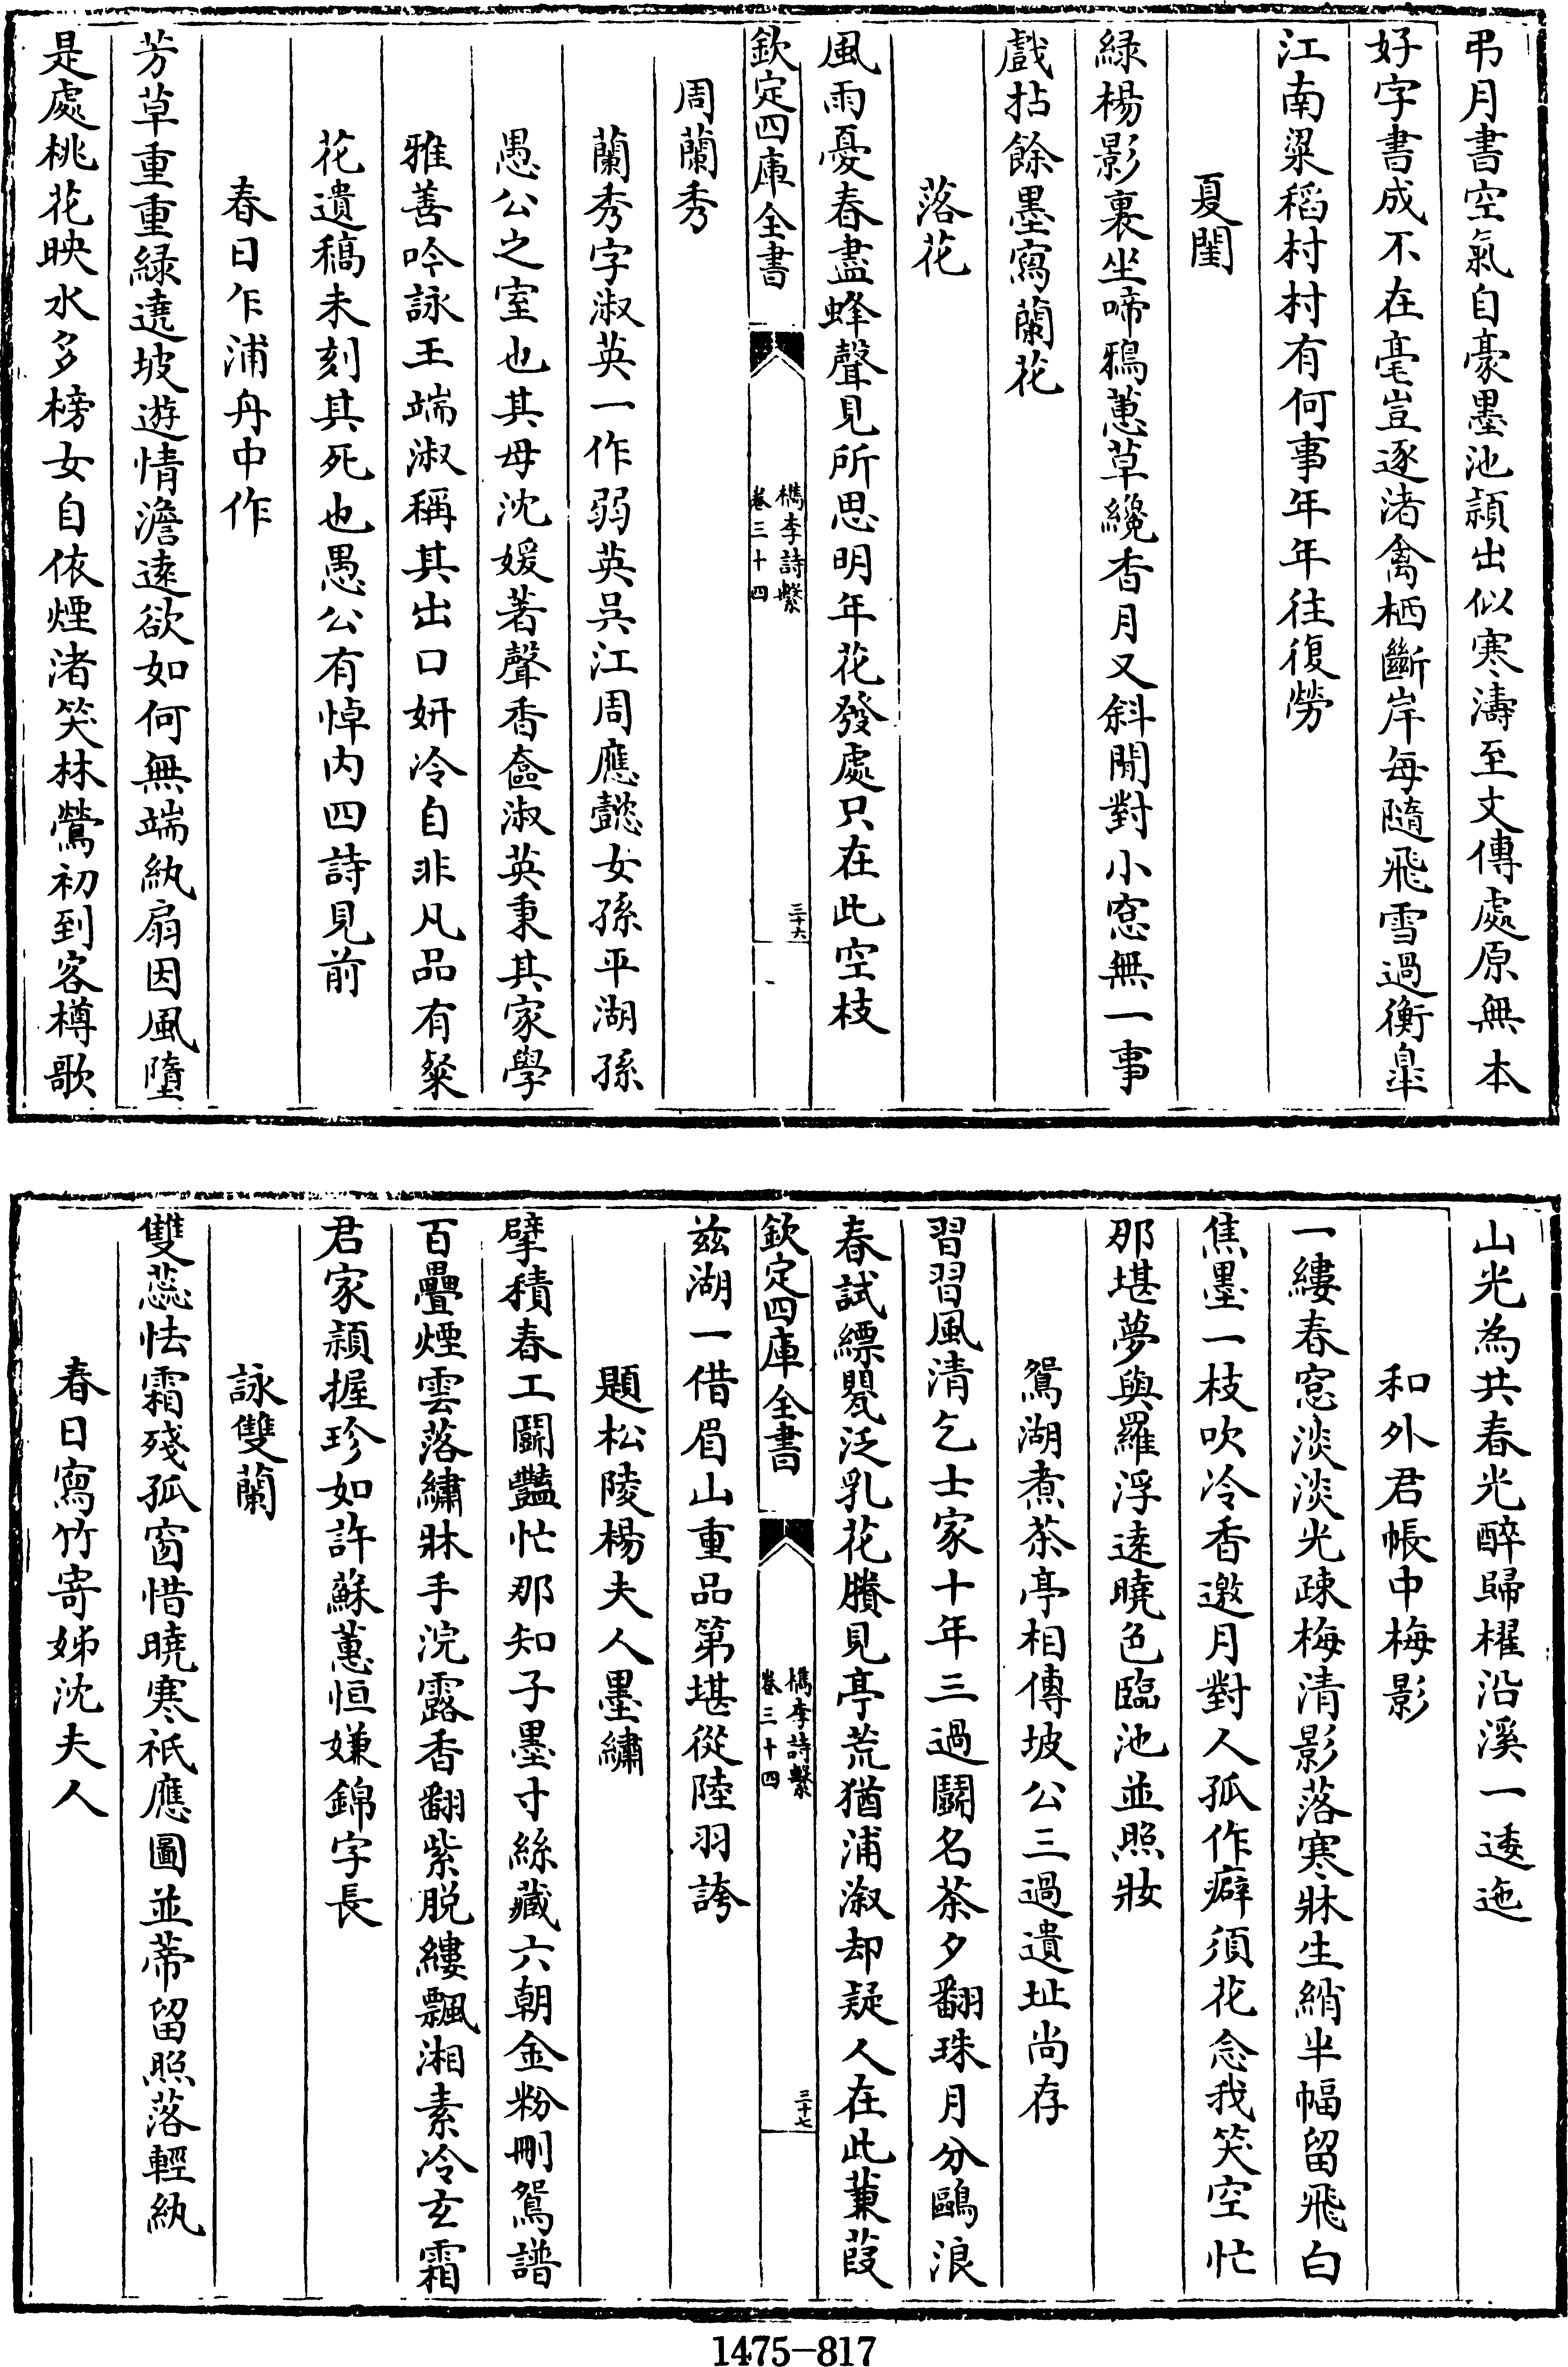 弔月書空氣自豪墨池頴出似寒濤至文傳處原無本
好字書成不在毫豈逐渚禽栖斷岸每隨飛雪過衡臯
江南粱稻村村有何事年年往復勞
夏閨
緑楊影裏坐啼鴉蕙草纔香月又斜閒對小窓無一事
戲拈餘墨寫蘭花
落花
風雨憂春盡蜂聲見所思明年花發處只在此空枝
欽定四庫全書
檇李詩繫
卷三十四
三十六
周蘭秀
蘭秀字淑英一作弱英吳江周應懿女孫平湖孫
愚公之室也其母沈媛著聲香奩淑英秉其家學
雅善吟詠王端淑稱其出口妍冷自非凡品有粲
花遺稿未刻其死也愚公有悼内四詩見前
春日乍浦舟中作
芳草重重緑遶坡遊情澹遠欲如何無端紈扇因風墮
是處桃花映水多榜女自依煙渚笑林鶯初到客樽歌
山光為共春光醉歸櫂沿溪一逶迤
和外君帳中梅影
一縷春窓淡淡光疎梅清影落寒牀生綃半幅留飛白
焦墨一枝吹冷香邀月對人孤作癖須花念我笑空忙
那堪夢與羅浮遠曉色臨池並照妝
鴛湖煮茶亭相傳坡公三過遺址尚存
習習風清乞士家十年三過鬭名茶夕翻珠月分鷗浪
春試縹甖泛乳花牘見亭荒猶浦溆却疑人在此蒹葭
兹湖一借眉山重品第堪從陸羽誇
欽定四庫全書
檇李詩繫
卷三十四
三十七
題松陵楊夫人墨繡
擘積春工鬭豔忙那知子墨寸絲藏六朝金粉刪鴛譜
百疊煙雲落繡牀手浣露香翻紫脱縷飄湘素冷玄霜
君家頴握珍如許蘇蕙恒嫌錦字長
詠雙蘭
雙蕊怯霜殘孤窗惜曉寒祇應圖並蒂留照落輕紈
春日寫竹寄姊沈夫人
1475-817